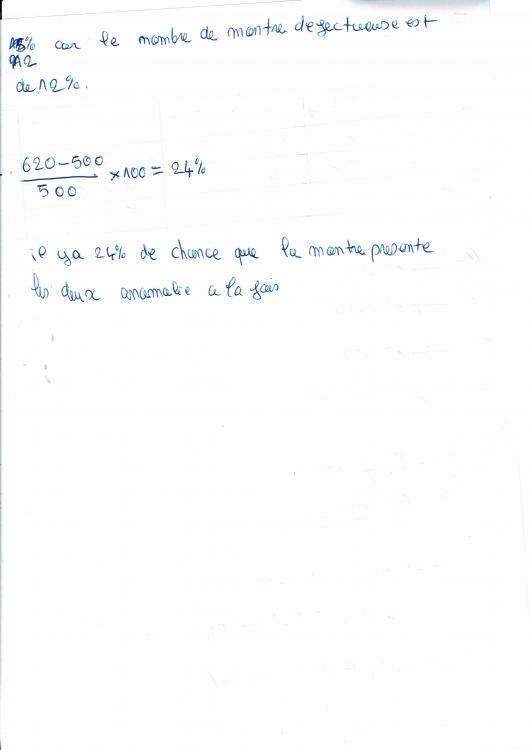 % car le nombre de montre defectueuse est
12
de 12%.
620-500
500
×100 = 24%
il ya 24% de chance que la montre presente
les deux anomalie a la fois